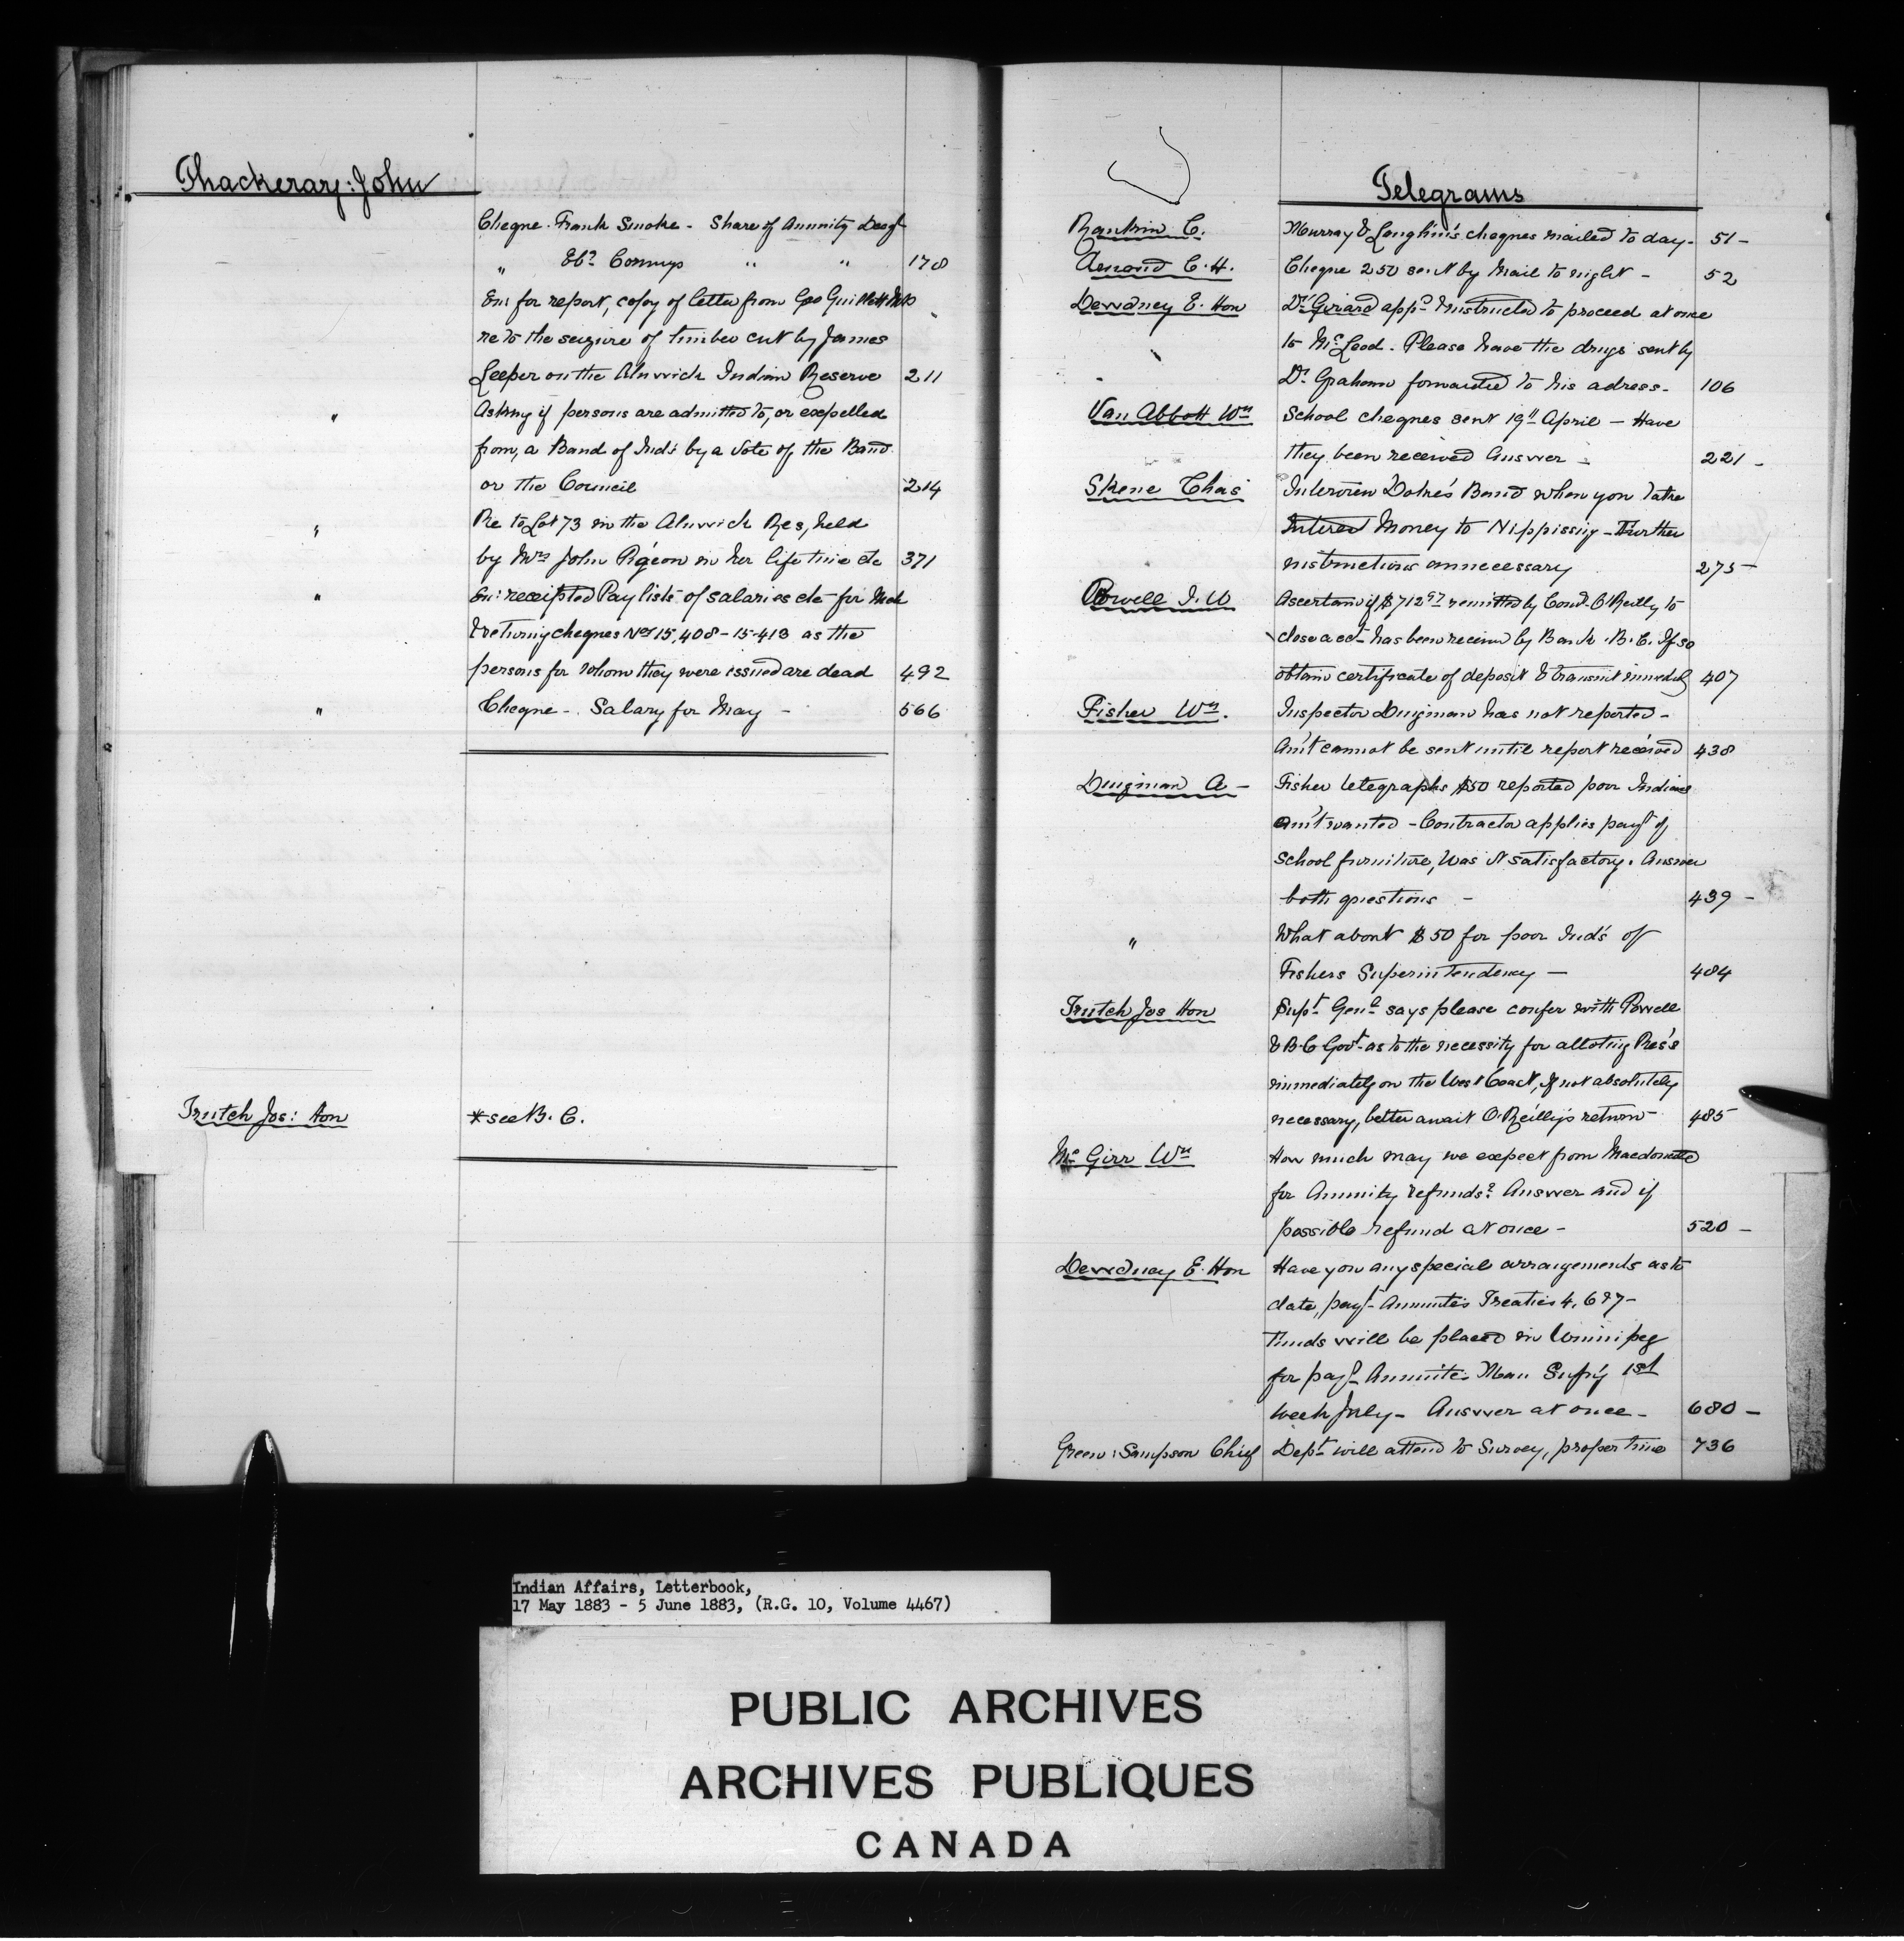 Thackeray: John
Cheque. Frank Smoke - Share of Annuity Deogt
" Ebr Comego " " 178
Enc for report, copy of letter from Geo Guillett M.P.
re to the seizure of timber cut by James
Leeper on the Alnwick Indian Reserve 211
" Asking if persons are admitted to, or expelled
from, a Band of Inds by a Vote of the Band
or the Council 214
" Re to Lot 73 in the Alnwick Res, held
by Mrs John Pigeon in her life time etc 371
" Enc: receipted Pay lists of salaries etc for Mch
& returning cheques Nos 15,408-15-413 as the
persons for whom they were issued are dead 492
" Cheque - Salary for May - 566
Trutch Jos: Hon *see B. C.
Telegrams
Rankin C. Murray & Longhin's cheques mailed to day - 51 -
C. H. Cheque 250 sent by Mail to night - 52
Dewdney E. Hon Dr Girard appd & instructed to proceed at once
to McLeod. Please have the drugs sent by
Dr Graham forwarded to his adress - 106
Van Abbott Wm School cheques sent 19th April - Have
they been received Answer - 221 -
Skene Chas Interview Dokis's Band when you take
Interest Money to Nippissing - Further
instructions unnecessary 275 -
Powell I. W Ascertain if $712 97 remitted by Comd. O'Reilly to
close acct has been received by Bank. B. C. If so
obtain certificate of deposit & transmit immedly 407
Fisher Wm. Inspector Dingman has not reported -
Am't cannot be sent until report received 438
Dingman A - Fisher telegraphs $50 reported poor Indians
Am't wanted - Contractor applies payt of
School furniture, Was it satisfactory. Answer
both questions - 439 -
" What about $50 for poor Ind's of
Fishers Superintendency - 484
Trutch Jos Hon Supt Genl says please confer with Powell
& B. C Govt as to the necessity for alloting Res's
immediately on the West Coast, If not absolutely
necessary, better await O'Reilly's return - 485
McGirr Wm How much may we expect from Macdonald
for Annuity refunds? Answer and if
possible refund at once - 520 -
Dewdney E. Hon Have you any special arrangements as to
date, payt Annuities Treaties 4, 6 & 7 -
Funds will be placed in Winnipeg
for payt Annuities Man Supcy 1st
week July - Answer at once - 680 -
Green: Sampson Chief Dept will attend to Survey, proper time 736
Indian Affairs, Letterbook,
17 May 1883 - 5 June 1883, (R.G. 10, Volume 4467)
PUBLIC ARCHIVES
ARCHIVES PUBLIQUES
CANADA